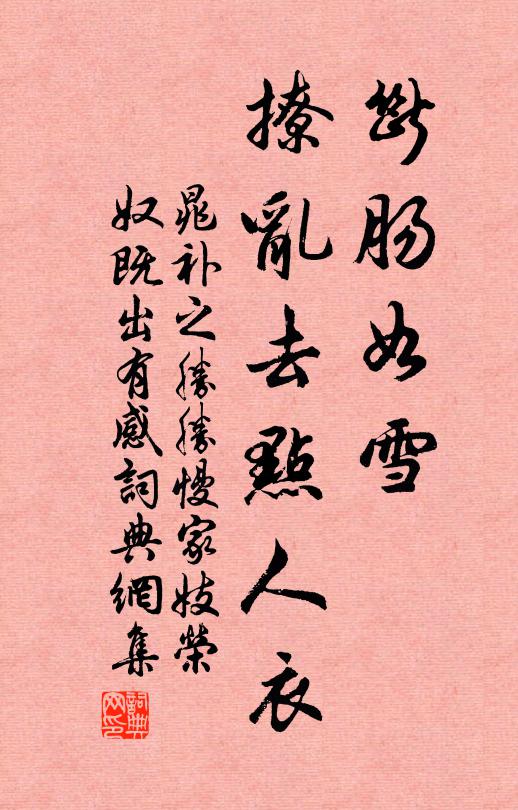 斷腸如雪
撩亂去點人衣
晁补之勝勝慢家妓榮
奴既出有感詞典網集
詞典
网印